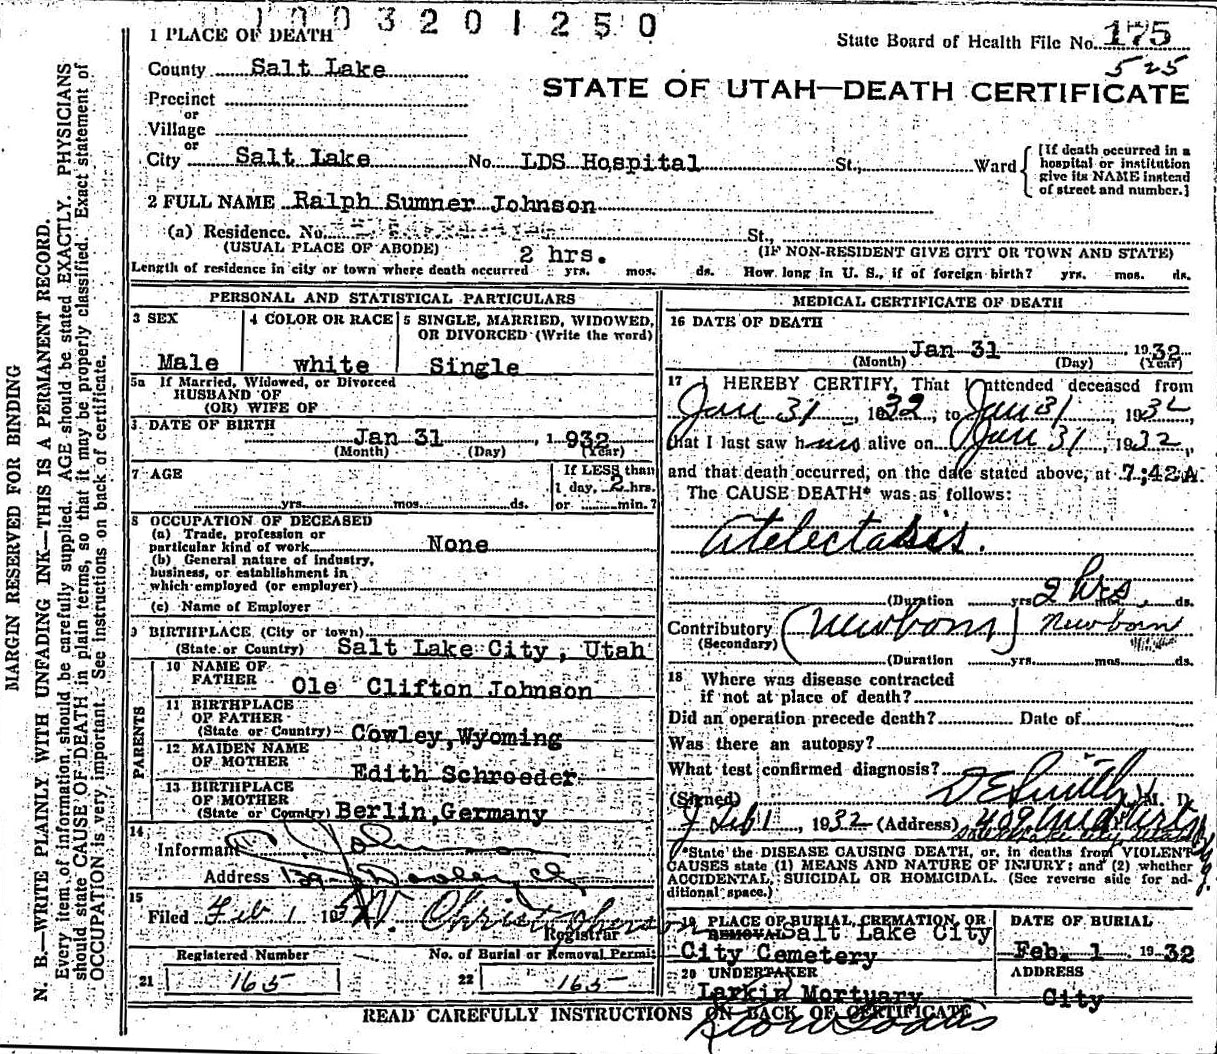 1003201250
1 PLACE OF DEATH
State Board of Health File No. 175
525
County Salt Lake
STATE OF UTAH—DEATH CERTIFICATE
Precinct
or
Village
or
City Salt Lake No. LDS Hospital St., Ward
[If death occurred in a
hospital or institution
give its NAME instead
of street and number.]
2 FULL NAME Ralph Sumner Johnson
(a) Residence. No. St.,
(USUAL PLACE OF ABODE) (IF NON-RESIDENT GIVE CITY OR TOWN AND STATE)
2 hrs.
Length of residence in city or town where death occurred yrs. mos. ds. How long in U. S., if of foreign birth? yrs. mos. ds.
PERSONAL AND STATISTICAL PARTICULARS
3 SEX
Male
4 COLOR OR RACE
white
5 SINGLE, MARRIED, WIDOWED,
OR DIVORCED (Write the word)
Single
5a If Married, Widowed, or Divorced
HUSBAND OF
(OR) WIFE OF
DATE OF BIRTH
Jan 31, 1932
(Month) (Day) (Year)
7 AGE
yrs. mos. ds.
If LESS than
1 day, 2 hrs.
or min.?
8 OCCUPATION OF DECEASED
(a) Trade, profession or
particular kind of work None
(b) General nature of industry,
business, or establishment in
which employed (or employer)
(c) Name of Employer
9 BIRTHPLACE (City or town)
(State or Country) Salt Lake City, Utah
PARENTS
10 NAME OF
FATHER Ole Clifton Johnson
11 BIRTHPLACE
OF FATHER
(State or Country) Cowley, Wyoming
12 MAIDEN NAME
OF MOTHER
Edith Schroeder
13 BIRTHPLACE
OF MOTHER
(State or Country) Berlin, Germany
14
Informant Johnson
Address
15
Filed Feb 1 193 W. Christopherson
Registrar
Registered Number
21 165
No. of Burial or Removal Permit
22 165
MEDICAL CERTIFICATE OF DEATH
16 DATE OF DEATH
Jan 31 1932
(Month) (Day) (Year)
17 I HEREBY CERTIFY, That I attended deceased from
Jan 31, 1932, to Jan 31, 1932,
that I last saw him alive on Jan 31, 1932,
and that death occurred, on the date stated above, at 7;42A.
The CAUSE DEATH* was as follows:
Atelectasis.
2 hrs
(Duration yrs. mos. ds.
Contributory (Newborn) Newborn
(Secondary)
(Duration yrs. mos. ds.
18 Where was disease contracted
if not at place of death?
Did an operation precede death? Date of
Was there an autopsy?
What test confirmed diagnosis?
(Signed) D E Smith M. D.
Feb 1, 1932 (Address) 409
*State the DISEASE CAUSING DEATH, or, in deaths from VIOLENT
CAUSES state (1) MEANS AND NATURE OF INJURY; and (2) whether
ACCIDENTAL, SUICIDAL OR HOMICIDAL. (See reverse side for ad-
ditional space.)
19 PLACE OF BURIAL, CREMATION, OR
REMOVAL Salt Lake City
City Cemetery
DATE OF BURIAL
Feb. 1 1932
20 UNDERTAKER
Larkin Mortuary
ADDRESS
City
READ CAREFULLY INSTRUCTIONS ON BACK OF CERTIFICATE
MARGIN RESERVED FOR BINDING
N. B.—WRITE PLAINLY WITH UNFADING INK—THIS IS A PERMANENT RECORD.
Every item of information should be carefully supplied. AGE should be stated EXACTLY. PHYSICIANS
should state CAUSE OF DEATH in plain terms, so that it may be properly classified. Exact statement of
OCCUPATION is very important. See instructions on back of certificate.